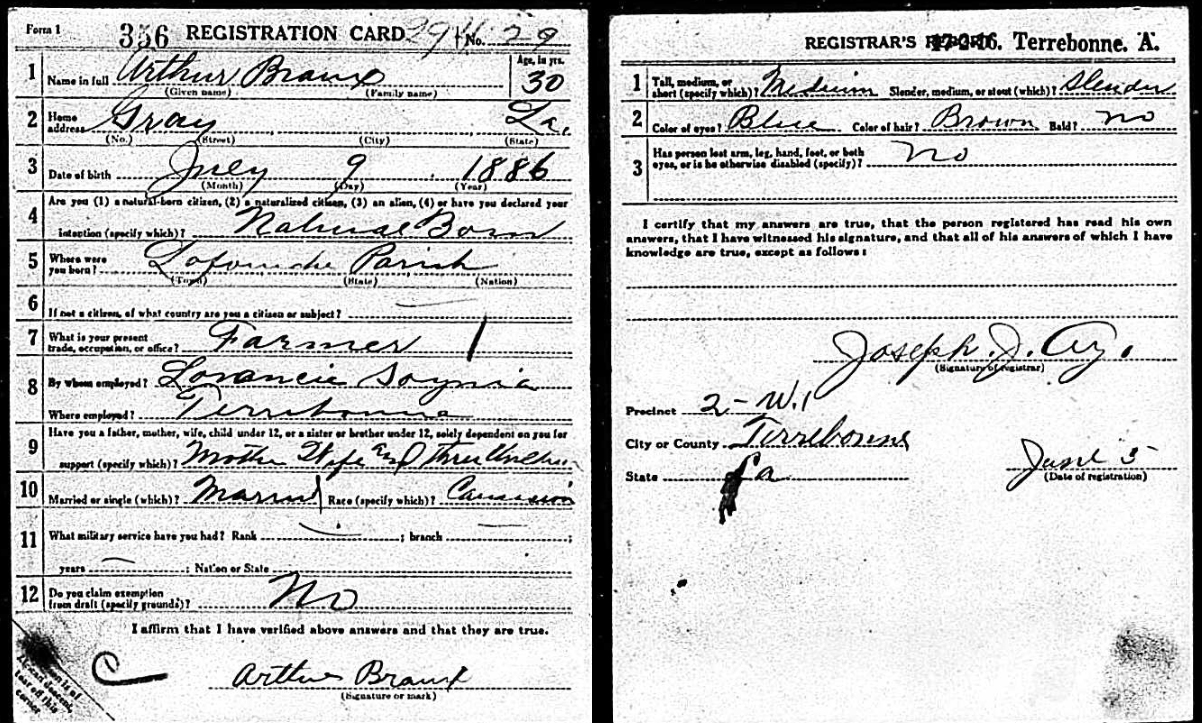 Form 1 356 REGISTRATION CARD No. 29
1 Name in full Arthur Braux Age, in yrs. 30
(Given name) (Family name)
2 Home address Gray La.
(No.) (Street) (City) (State)
3 Date of birth July 9 1886
(Month) (Day) (Year)
4 Are you (1) a natural-born citizen, (2) a naturalized citizen, (3) an alien, (4) or have you declared your
intention (specify which)? Natural Born
5 Where were you born? Lafourche Parish
(Town) (State) (Nation)
6 If not a citizen, of what country are you a citizen or subject?
7 What is your present trade, occupation, or office? Farmer
8 By whom employed?
Where employed? Terrebonne
9 Have you a father, mother, wife, child under 12, or a sister or brother under 12, solely dependent on you for
support (specify which)? Mother Wife and three
10 Married or single (which)? Married Race (specify which)? Caucasian
11 What military service have you had? Rank ; branch ;
years ; Nation or State
12 Do you claim exemption from draft (specify grounds)? No
I affirm that I have verified above answers and that they are true.
Arthur Braux
(Signature or mark)
If person is of
African descent,
tear off this
corner
REGISTRAR'S REPORT Terrebonne. A.
1 Tall, medium, or short (specify which)? Medium Slender, medium, or stout (which)? Slender
2 Color of eyes? Blue Color of hair? Brown Bald? no
3 Has person lost arm, leg, hand, foot, or both eyes, or is he otherwise disabled (specify)? No
I certify that my answers are true, that the person registered has read his own
answers, that I have witnessed his signature, and that all of his answers of which I have
knowledge are true, except as follows:
Joseph. J. Ay.
(Signature of registrar)
Precinct 2-W.1
City or County Terrebonne
State La
June 5
(Date of registration)